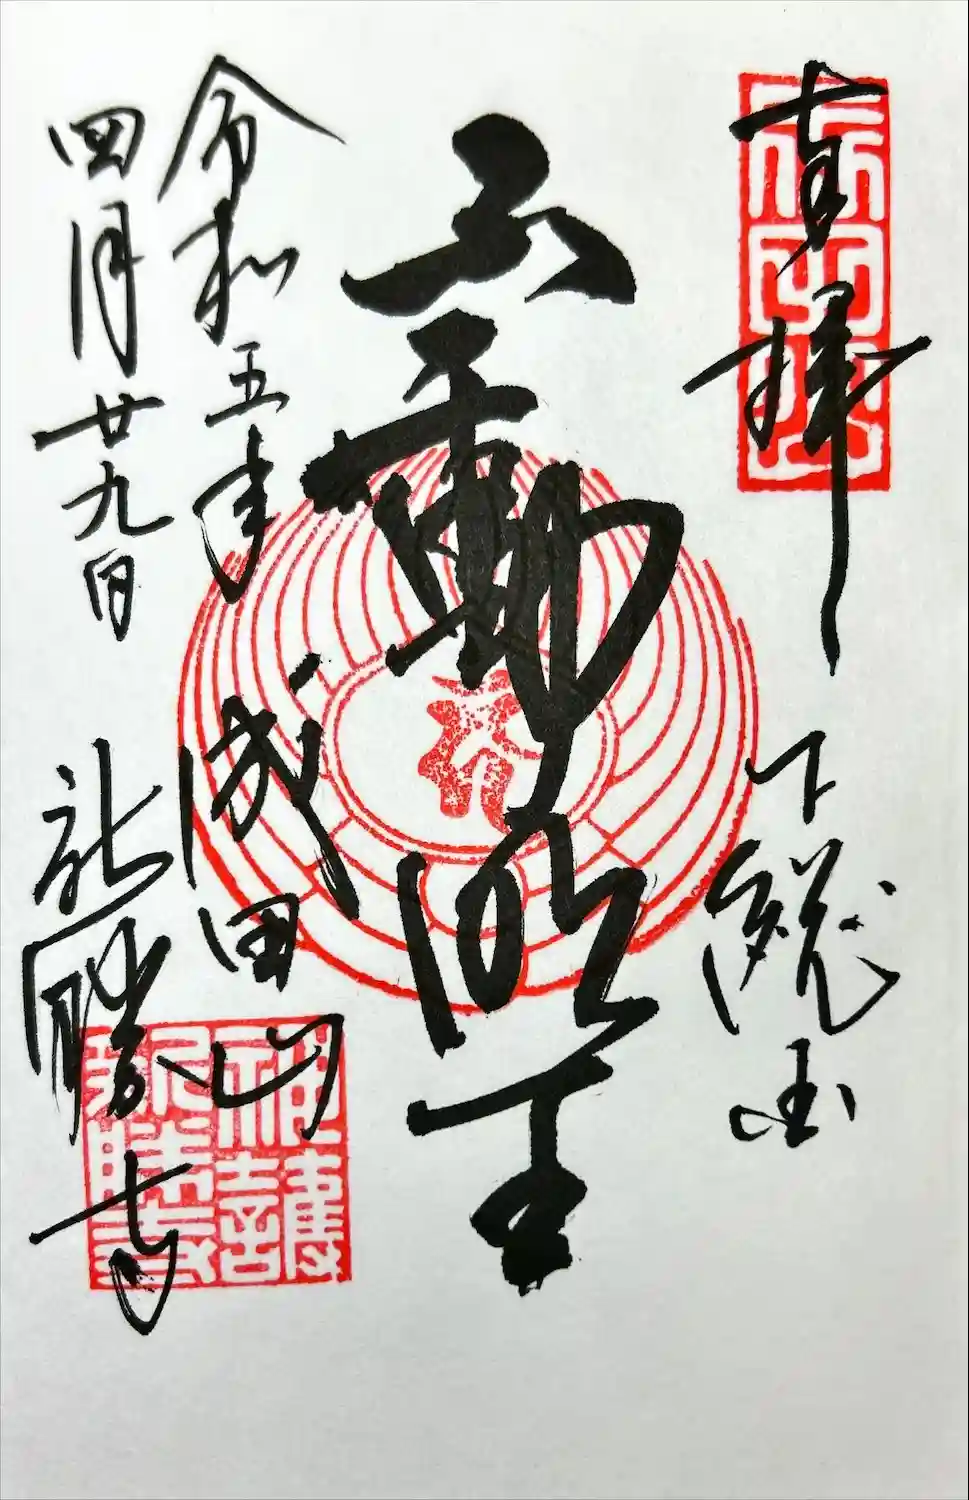 奉拝
下総国
不動明王
令和五年
四月廿九日
成田山
新勝寺
神護
新勝寺